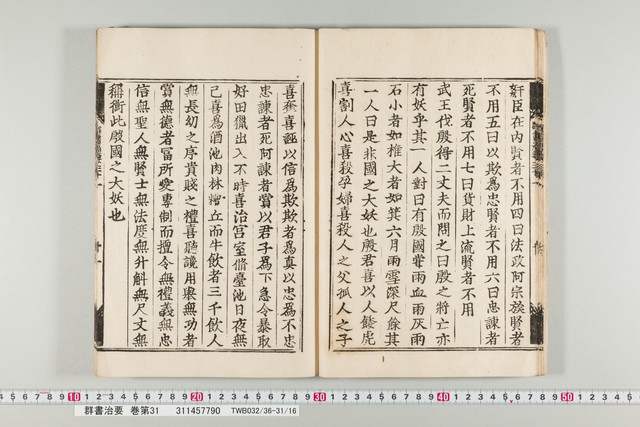 奸臣在內賢者不用四曰法政阿宗族賢者
不用五曰以欺為忠賢者不用六曰忠諫者
死賢者不用七曰貨財上流賢者不用
武王伐殷得二丈夫而問之曰殷之將亡亦
有妖乎其一人對曰有殷國甞雨血雨灰雨
石小者如椎大者如箕六月雨雪深尺餘其
一人曰是非國之大妖也殷君喜以人餧虎
喜割人心喜殺孕婦喜殺人之父孤人之子
喜奪喜誣以信為欺欺者為真以忠為不忠
忠諫者死阿諛者賞以君子為下急令暴取
好田獵出入不時喜治宮室脩臺池日夜無
已喜為酒池肉林糟丘而牛飲者三千飲人
無長幼之序貴賤之禮喜聽讒用舉無功者
賞無德者富所愛專制而擅令無禮義無忠
信無聖人無賢士無法度無升斛無尺丈無
稱衡此殷國之大妖也
10 20 30 40 50
群書治要 巻第31 311457790 TWB032/36-31/16